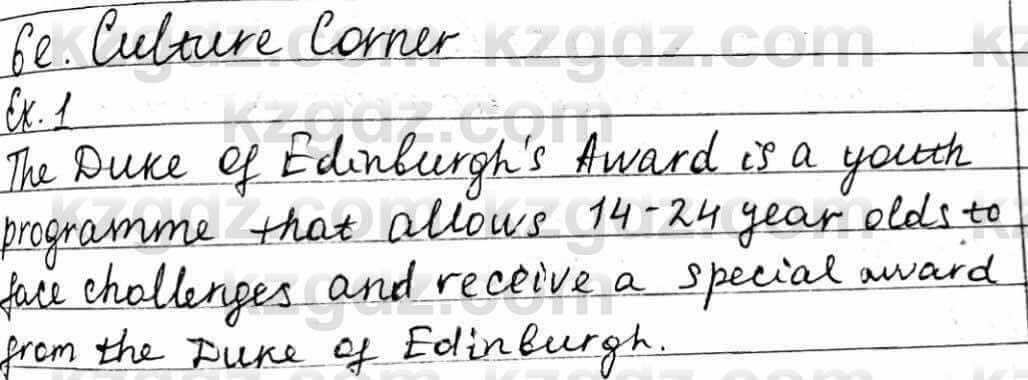 6e. Culture Corner
Ex. 1
The Duke of Edinburgh's Award is a youth
programme that allows 14-24 year olds to
face challenges and receive a special award
from the Duke of Edinburgh.